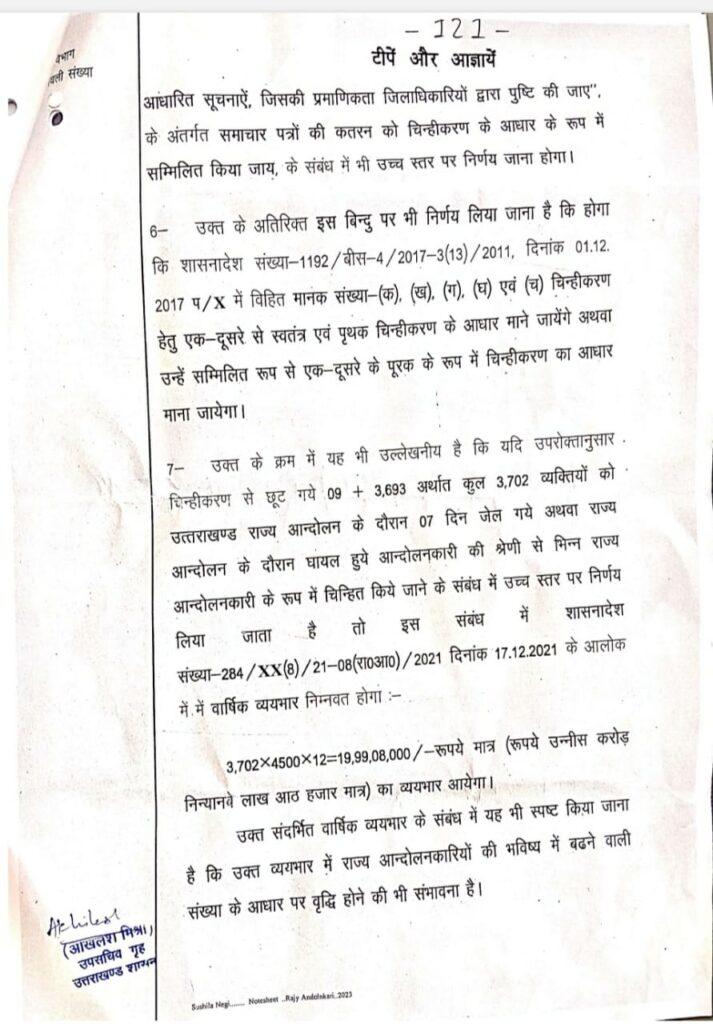 - 121 -
टीपें और आज्ञायें
वली संख्या
आधारित सूचनाऐं, जिसकी प्रमाणिकता जिलाधिकारियों द्वारा पुष्टि की जाए",
के अंतर्गत समाचार पत्रों की कतरन को चिन्हीकरण के आधार के रूप में
सम्मिलित किया जाय, के संबंध में भी उच्च स्तर पर निर्णय जाना होगा।
6– उक्त के अतिरिक्त इस बिन्दु पर भी निर्णय लिया जाना है कि होगा
कि शासनादेश संख्या–1192/बीस–4/2017–3(13)/2011, दिनांक 01.12.
2017 प/X में विहित मानक संख्या–(क), (ख), (ग), (घ) एवं (च) चिन्हीकरण
हेतु एक–दूसरे से स्वतंत्र एवं पृथक चिन्हीकरण के आधार माने जायेंगे अथवा
उन्हें सम्मिलित रूप से एक–दूसरे के पूरक के रूप में चिन्हीकरण का आधार
माना जायेगा।
7– उक्त के क्रम में यह भी उल्लेखनीय है कि यदि उपरोक्तानुसार
चिन्हीकरण से छूट गये 09 + 3,693 अर्थात कुल 3,702 व्यक्तियों को
उत्तराखण्ड राज्य आन्दोलन के दौरान 07 दिन जेल गये अथवा राज्य
आन्दोलन के दौरान घायल हुये आन्दोलनकारी की श्रेणी से भिन्न राज्य
आन्दोलनकारी के रूप में चिन्हित किये जाने के संबंध में उच्च स्तर पर निर्णय
लिया जाता है तो इस संबंध में शासनादेश
संख्या–284/XX(8)/21–08(रा0आ0)/2021 दिनांक 17.12.2021 के आलोक
में में वार्षिक व्ययभार निम्नवत होगा :–
3,702×4500×12=19,99,08,000/–रूपये मात्र (रूपये उन्नीस करोड़
निन्यानवे लाख आठ हजार मात्र) का व्ययभार आयेगा।
उक्त संदर्भित वार्षिक व्ययभार के संबंध में यह भी स्पष्ट किया जाना
है कि उक्त व्ययभार में राज्य आन्दोलनकारियों की भविष्य में बढने वाली
संख्या के आधार पर वृद्धि होने की भी संभावना है।
Akhilesh
(अखिलेश मिश्रा)
उपसचिव गृह
उत्तराखण्ड शासन
Sushila Negi....... Notesheet ..Rajy Andolnkari..2023